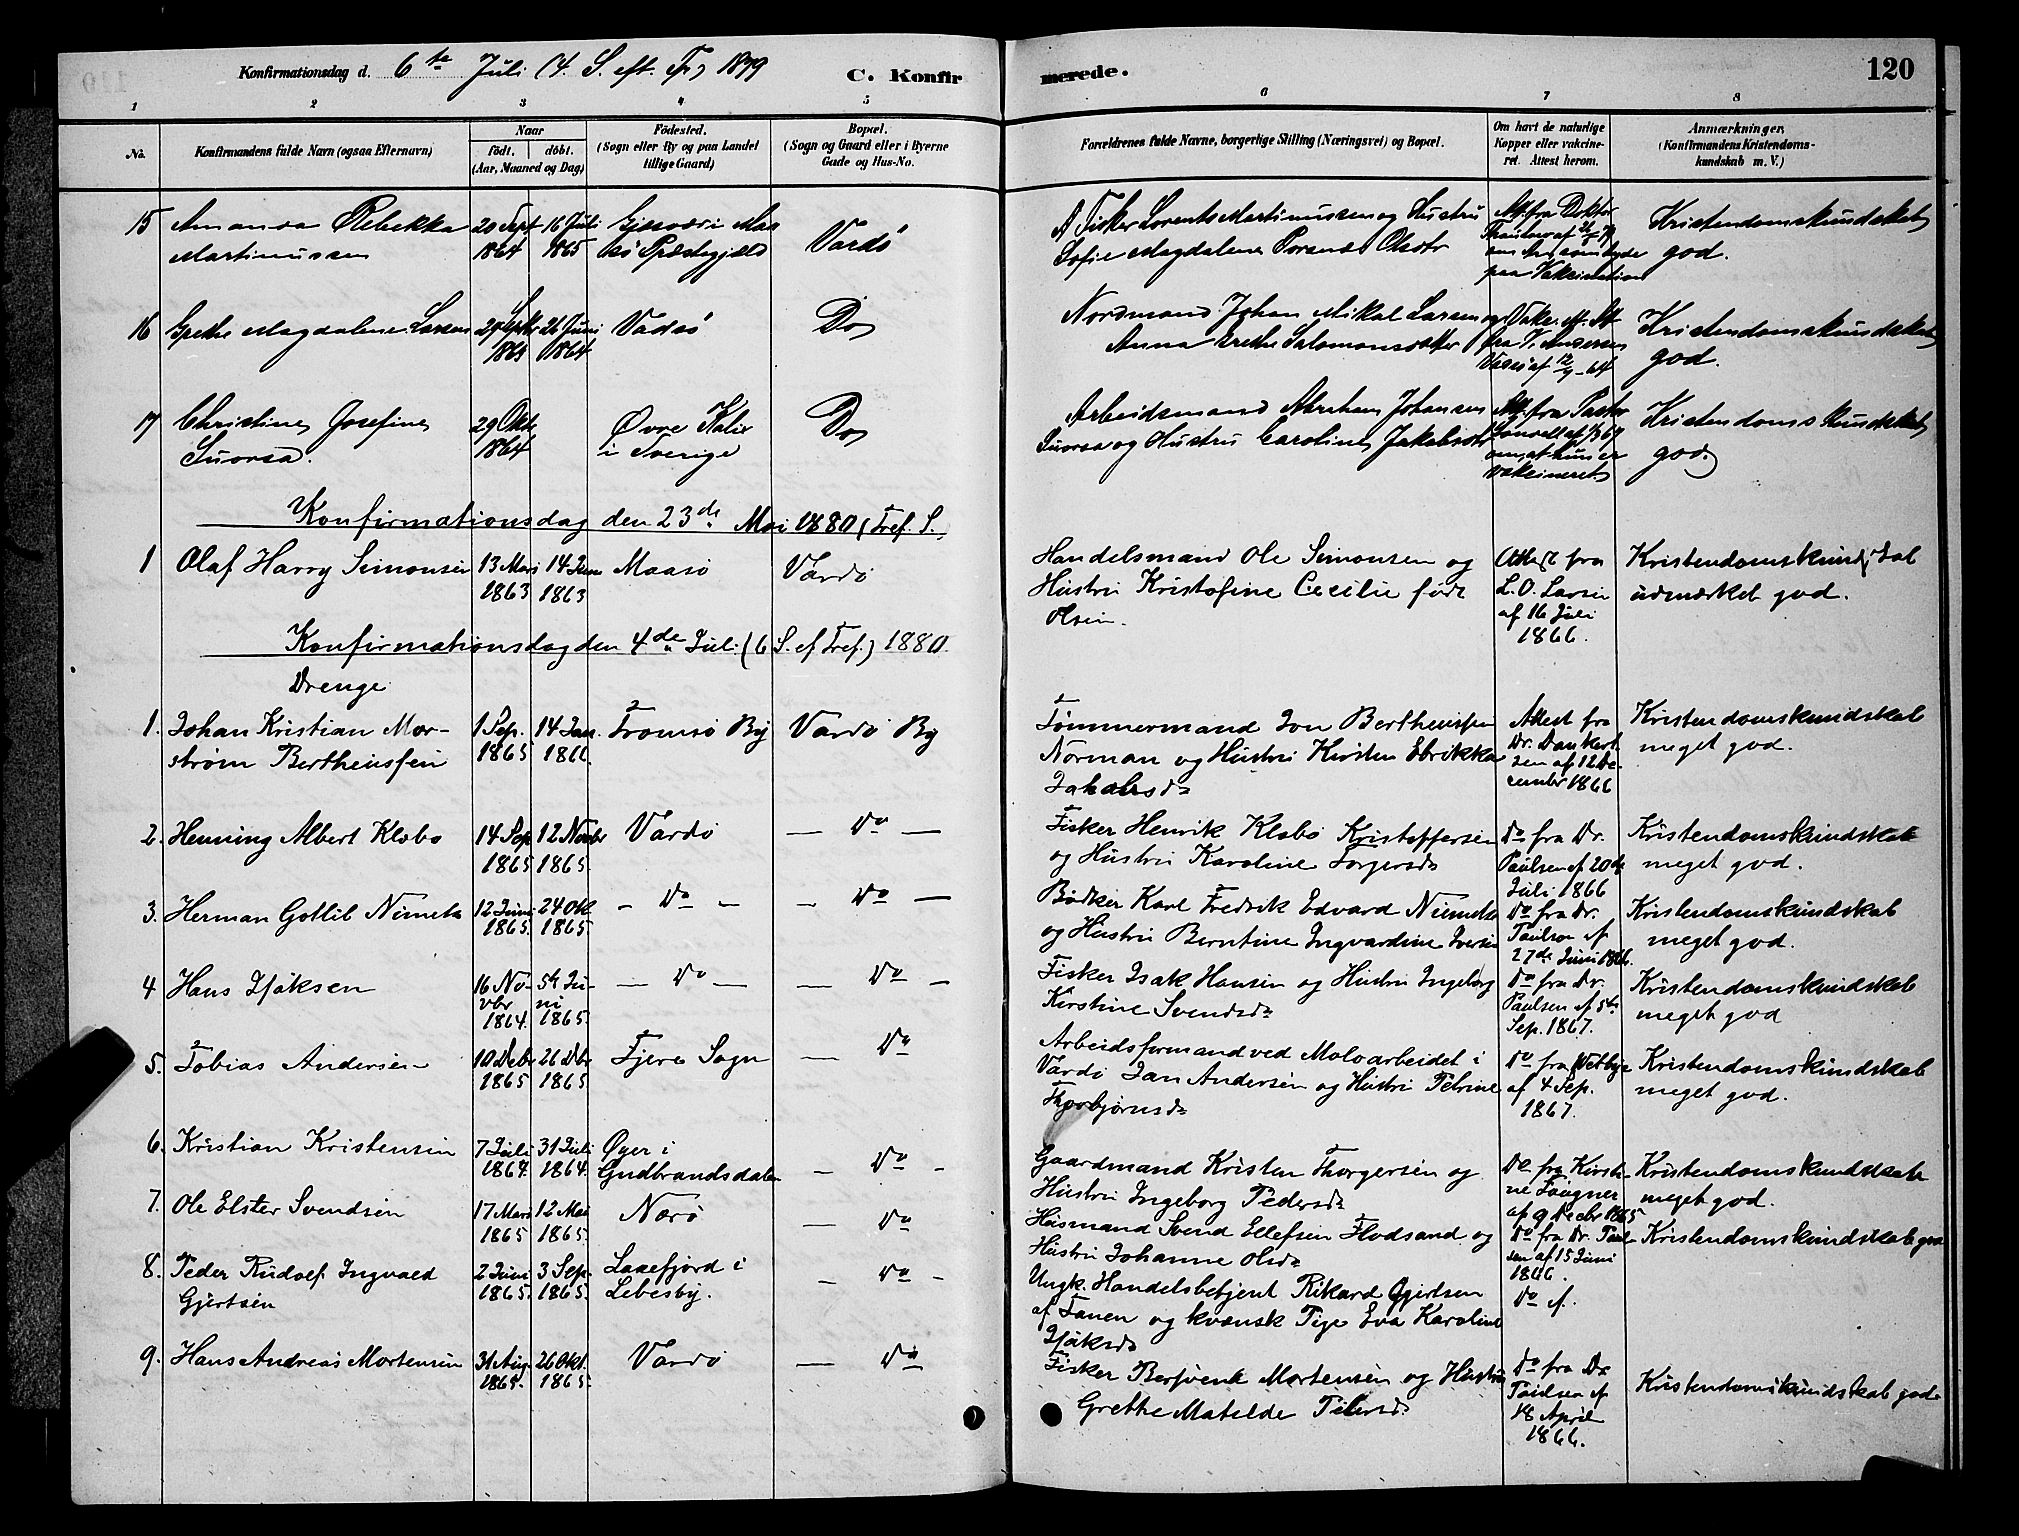 Konfirmationsdag d. 6te Juli (4. S. eft. Tr.) 1879
C. Konfirmerede.
120
1 2 3 4 5 6 7 8
No.
Konfirmandens fulde Navn (ogsaa Efternavn)
Naar
født. døbt.
(Aar, Maaned og Dag)
Fødested.
(Sogn eller By og paa Landet
tillige Gaard)
Bopæl.
(Sogn og Gaard eller i Byerne
Gade og Hus-No.
Forældrenes fulde Navne, borgerlige Stilling (Næringsvei) og Bopæl.
Om havt de naturlige
Kopper eller vakcine-
ret. Attest herom.
Anmærkninger
(Konfirmandens Kristendoms-
kundskab m. V.)
15 Amanda Rebekka
Martinussen
20 Sept
1864
16 Juli
1865
Gjesvær i Maa
sø Præstegjæld
Vardø
Fisker Lorents Martinussen og Hustru
Sofie Magdalene Olsdtr
Att. fra Doktor
paa Vakcination
Kristendomskundskab
god.
16 Grethe Magdalene Larsen
26 Juni
1864
Vadsø
Do
Nordmand Johan Mikal Larsen og
Anna Grethe Salomonsdatter
fra K. Andersen
Vadsø af 12/9-64
Kristendomskundskab
god.
17 Christine Josefine
Suorsa.
29 Okt
1864
Øvre Kalix
i Sverige
Do
Arbeidsmand Abraham Johansen
Suorsa og Hustru Caroline Jakobsdtr
Att. fra Pastor
om at hun er
vakcineret
Kristendomskundskab
god.
Konfirmationsdag den 23de Mai 1880 (Tref. S.)
1 Olaf Harry Simonsen
13 Mars
1863
14 Jun
1863
Maasø
Vardø
Handelsmand Ole Simonsen og
Hustru Kristofine Cecilie født
Olsen.
Attest fra
L. O. Larsen
af 16 Juli
1866.
Kristendomskundskab
udmærket god.
Konfirmationsdag den 4de Juli (6 S. ef Tref.) 1880.
Drenge
1. Johan Kristian Mor-
strøm Bertheussen
1 Sep.
1865
14 Jan.
1866.
Tromsø By
Vardø By
Tømmermand Jon Bertheussen
Norman og Hustru Kirsten Ebrikka
Jakobsd.
Attest fra
Dr. Dankert
sen af 12 De-
cember 1866
Kristendomskundskab
meget god.
2. Henning Albert Klæbo
14 Sep
1865
12 Novbr
1865.
Vardø
— Do —
Fisker Henrik Klæbo Kristoffersen
og Hustru Karoline Torgersd.
Do fra Dr.
Paulsen af 20de
Juli 1866
Kristendomskundskab
meget god.
3. Herman Gotlib Nimetz
12 Juni
1865.
24 Ok
1865
— Do —
— Do —
Bødker Karl Fredrik Edvard Nimetz
og Hustru Berntine Ingvardine Iversen
Do fra Dr.
Paulsen af
27de Juni 1866.
Kristendomskundskab
meget god.
4 Hans Isaksen
16 No-
vbr
1864.
5te Ju-
ni
1865.
— Do —
— Do
Fisker Isak Hansen og Hustru Ingeborg
Kirstine Svendsd.
Do fra Dr.
Paulsen af 5te
Sep. 1867.
Kristendomskundskab
meget god
5. Tobias Andersen
10 Debr
1865
26 Dbr
1865
Fjære Sogn
— Do
Arbeidsformand ved Moloarbeidet i
Vardø Jan Andersen og Hustru Petrine
Thorbjørnsd.
Do fra
af 4 Sep.
1867.
Kristendomskundskab
meget god.
6. Kristian Kristensen
7 Juli
1864.
31 Juli
1864.
Øyer i
Gudbrandsdalen
— Do —
Gaardmand Kristen Thorgersen og
Hustru Ingeborg Pedersd.
Do fra Kirsti-
ne Faugner
af 9 Decbr 1865
Kristendomskundskab
meget god.
7. Ole Elster Svendsen
17 Mars
1865
12 Mai
1865.
Nærø
— Do
Husmand Svend Ellefsen Flodsand og
Hustru Johanne Olsd.
Do fra Dr. Paul-
sen af 15 Juni
1866.
Kristendomskundskab god
8. Peder Rudolf Ingvald
Gjertsen
2 Juni
1865.
3 Sep.
1865.
Laxefjord i
Lebesby.
— Do —
Ungk. Handelsbetjent Rikard Gjertsen
af Tanen og kvænsk Pige Eva Karoline
Isaksd.
Do af.
9. Hans Andreas Mortensen
31 Aug.
1865.
26 Okt.
1865.
Vardø
— Do
Fisker Mortensen og Hustru
Grethe Matilde Petersd.
Do fra Dr
Paulsen af
18 April
1866.
Kristendomskundskab god